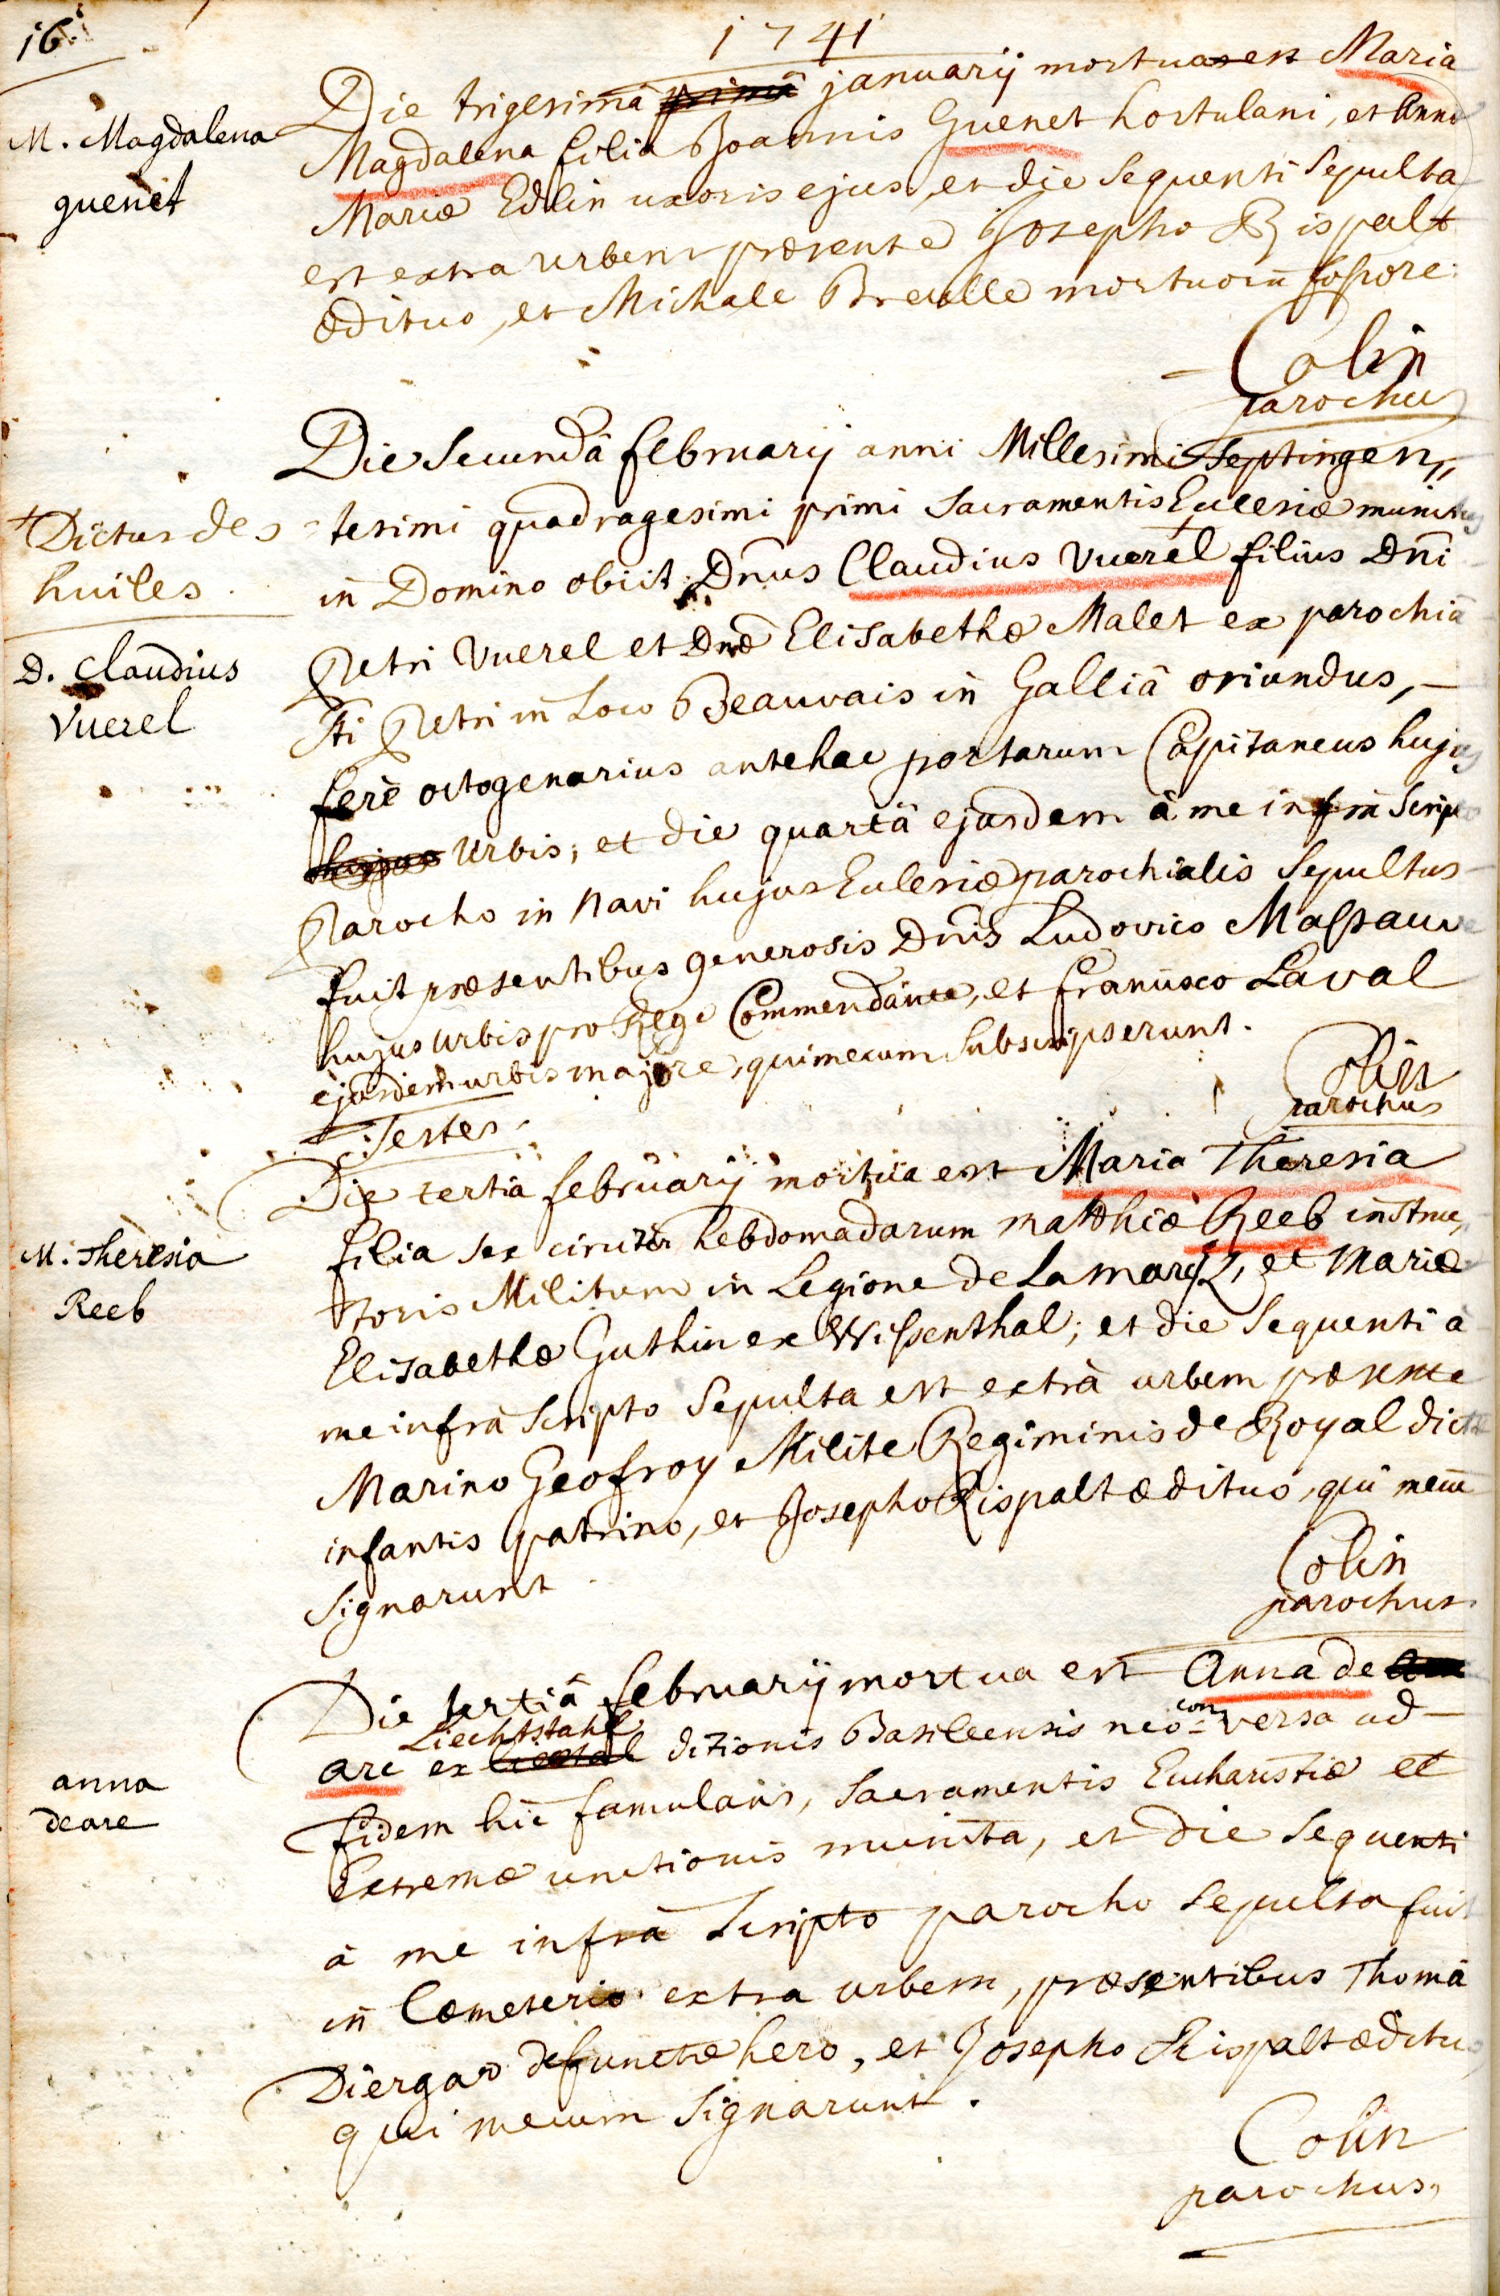 16.
1741
M. Magdalena
guenet
Die trigesimâ primâ januarij mortua est Maria
Magdalena filia Joannis Guenet hortulani, et Anna
Mariæ Edlin uxoris ejus, et die sequenti sepulta
est extra urbem præsente Josepho Rispalt
ædituo, et Michale Breulle mortuorū fossore.
Colin
parochus
Die secundâ februarij anni Millesimi septingen„
+Dictus des
huiles.
D. Claudius
Vuerel
tesimi quadragesimi primi sacramentis Ecclesiæ munitus
in Domino obiit Dnus Claudius Vuerel filius Dni
Petri Vuerel et Dnæ Elisabethæ Malet ex parochiâ
Sti Petri in Loco Beauvais in Galliâ oriundus,
ferè octogenarius antehac portarum Capitaneus hujus
hujus Urbis; et die quartâ ejusdem à me infra scripto
Parocho in navi hujus Ecclesiæ parochialis sepultus
fuit præsentibus generosis Dnis Ludovico Massauve
hujus urbis pro Rege Commendante, et francisco Laval
ejusdem urbis majore, qui mecum subscripserunt.
Testes.
Colin
parochus
M. Theresia
Reeb
Die tertiâ februarij mortua est Maria Theresia
filia sex circiter hebdomadarum matthiæ Reeb instruc,
toris Militum in Legione de Lamarck, et Mariæ
Elisabethæ Guthin ex Wissenthal; et die sequenti à
me infrà scripto sepulta est extrà urbem præsente
Marino Geofroy Milite Regiminis de Royal dictæ
infantis patrino, et Josepho Rispalt ædituo, qui mecū
signarunt.
Colin
parochus
anna
deare
Die tertiâ februarij mortua est Anna de are
are ex Liechtstahl liestal ditionis Basileensis neo-conversa ad
fidem hic famulans, sacramentis Eucharistiæ et
Extremæ unctionis munita, et die sequenti
à me infrà scripto parocho sepulta fuit
in Cæmeterio extra urbem, præsentibus Thomâ
Diergar defunctæ hero, et Josepho Rispalt ædituo
qui mecum signarunt.
Colin
parochus